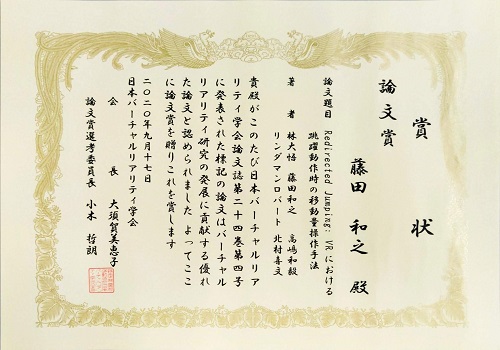 賞状
論文賞
藤田 和之 殿
論文題目 Redirected Jumping: VRにおける
跳躍動作時の移動量操作手法
著者 林大悟 藤田和之 高嶋和毅
リンダマンロバート 北村喜文
貴殿がこのたび日本バーチャルリア
リティ学会論文誌第二十四巻第四号
に発表された標記の論文はバーチャル
リアリティ研究の発展に貢献する優れ
た論文と認められました よってここ
に論文賞を贈りこれを賞します
二〇二〇年九月十七日
日本バーチャルリアリティ学会
会長 大須賀美恵子
論文賞選考委員長 小木 哲朗